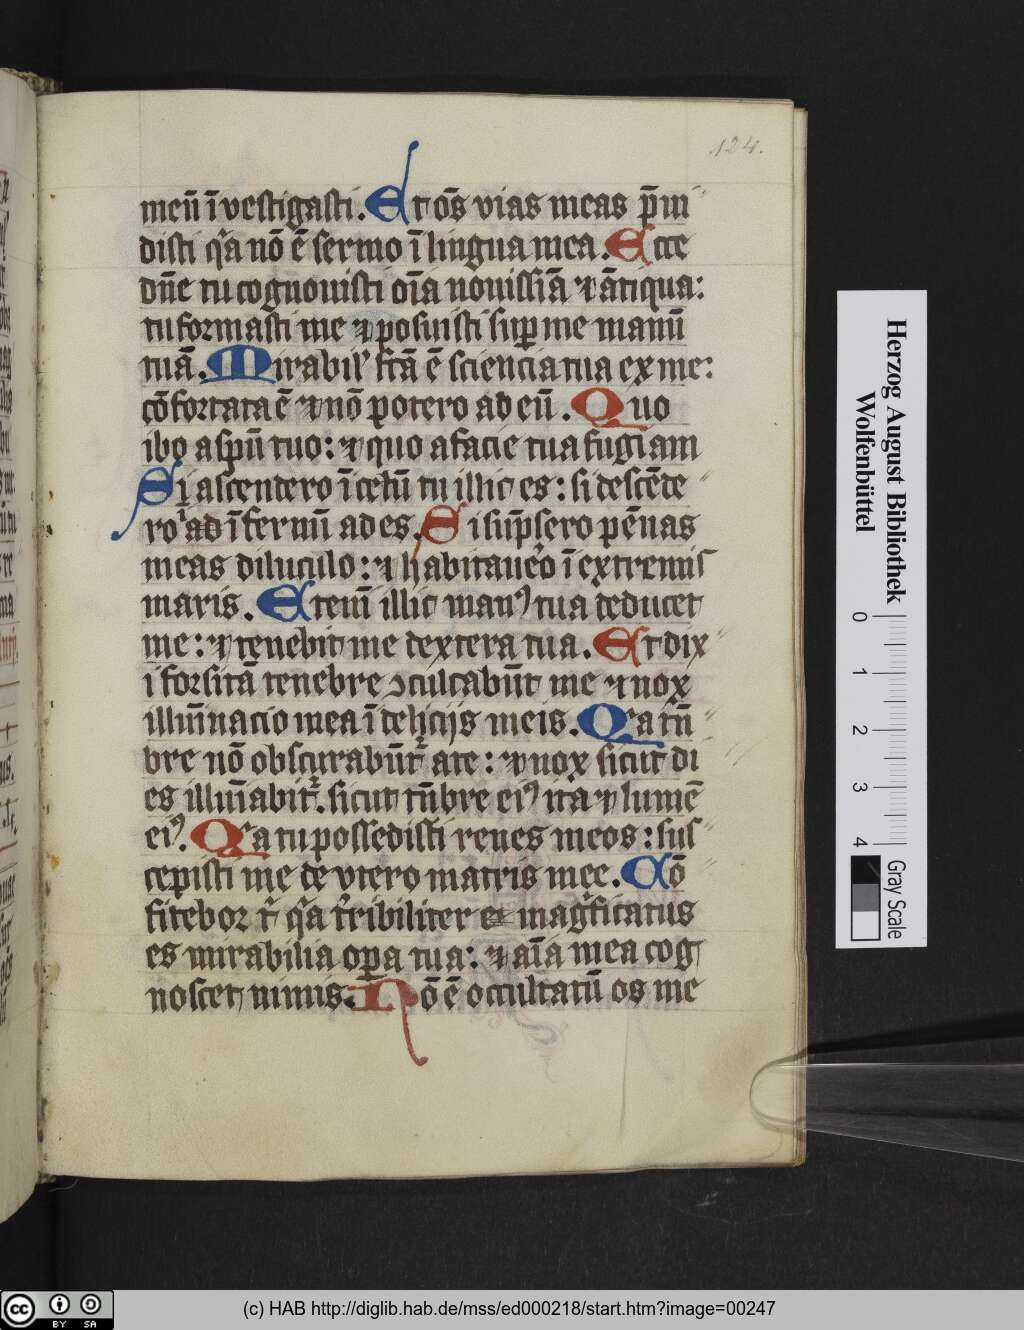 124.
meū īvestigasti. Et oēs vias meas p̄ui
disti qͥa nō ē sermo ī lingua mea. Ecce
dn̄e tu cognouisti oīa nouissīa ⁊ ātiqua:
tu formasti me ⁊ posuisti suꝑ me manū
tuā. Mirabilꝭ fc̄ā ē sciencia tua ex me:
cōfortata ē ⁊ nō potero ad eū. Quo
ibo a sp̄u tuo: ⁊ quo a facie tua fugiam
Si ascendero ī celū tu illic es: si descēde
ro ad īfernū ad es. Si sūpsero pēnas
meas diluculo: ⁊ habitauēo ī extremis
maris. Etenī illic manꝰ tua deducet
me: ⁊ tenebit me dextera tua. Et dix
i forsitā tenebre ꝯculcabūt me ⁊ nox
illūnacio mea ī delicijs meis. Qͥa tn̄
bre nō obscurabūt᷑ a te: ⁊ nox sicut di
es illūīabit᷑. sicut tn̄bre eiꝰ ita ⁊ lumē
eiꝰ. Qͥa tu possedisti renes meos: sus
cepisti me de vtero matris mee. Cō
fitebor t̄ qͥa t̄ribiliter et magͥficatus
es mirabilia oꝑa tua: ⁊ aīa mea cog
noscet nimis. Nō ē occultatū os me
Herzog August Bibliothek
Wolfenbüttel
0 1 2 3 4
Gray Scale
cc BY SA
(c) HAB http://diglib.hab.de/mss/ed000218/start.htm?image=00247